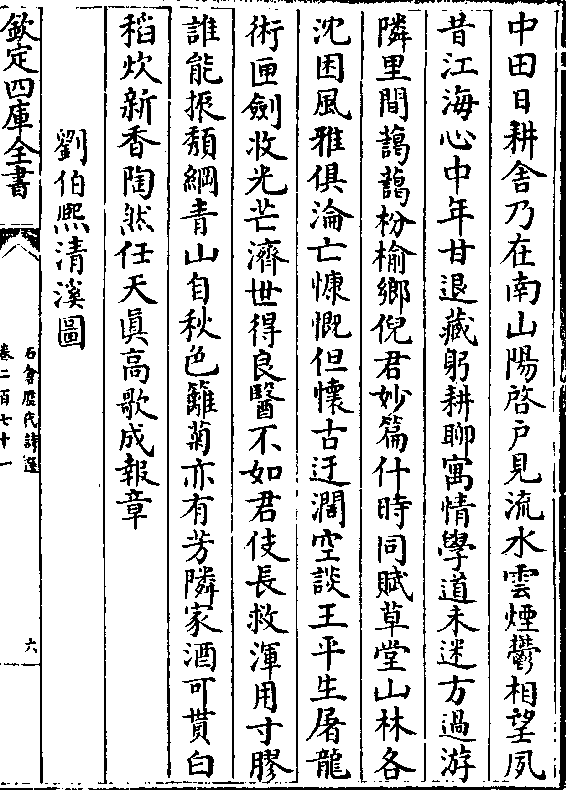 中田日耕舍乃在南山陽啓戶見流水雲煙鬱相望夙
昔江海心中年甘退藏躬耕聊寓情學道未迷方過游
隣里間藹藹枌榆鄉倪君妙篇什時同賦草堂山林各
沈困風雅俱淪亡慷慨但懷古迂濶空談王平生屠龍
術匣劍收光芒濟世得良醫不如君伎長救渾用寸膠
誰能振頽綱青山自秋色籬菊亦有芳隣家酒可貰白
稻炊新香陶然任天真高歌成報章
劉伯熙清溪圖
欽定四庫全書
石倉歷代詩選
卷二百七十一
六